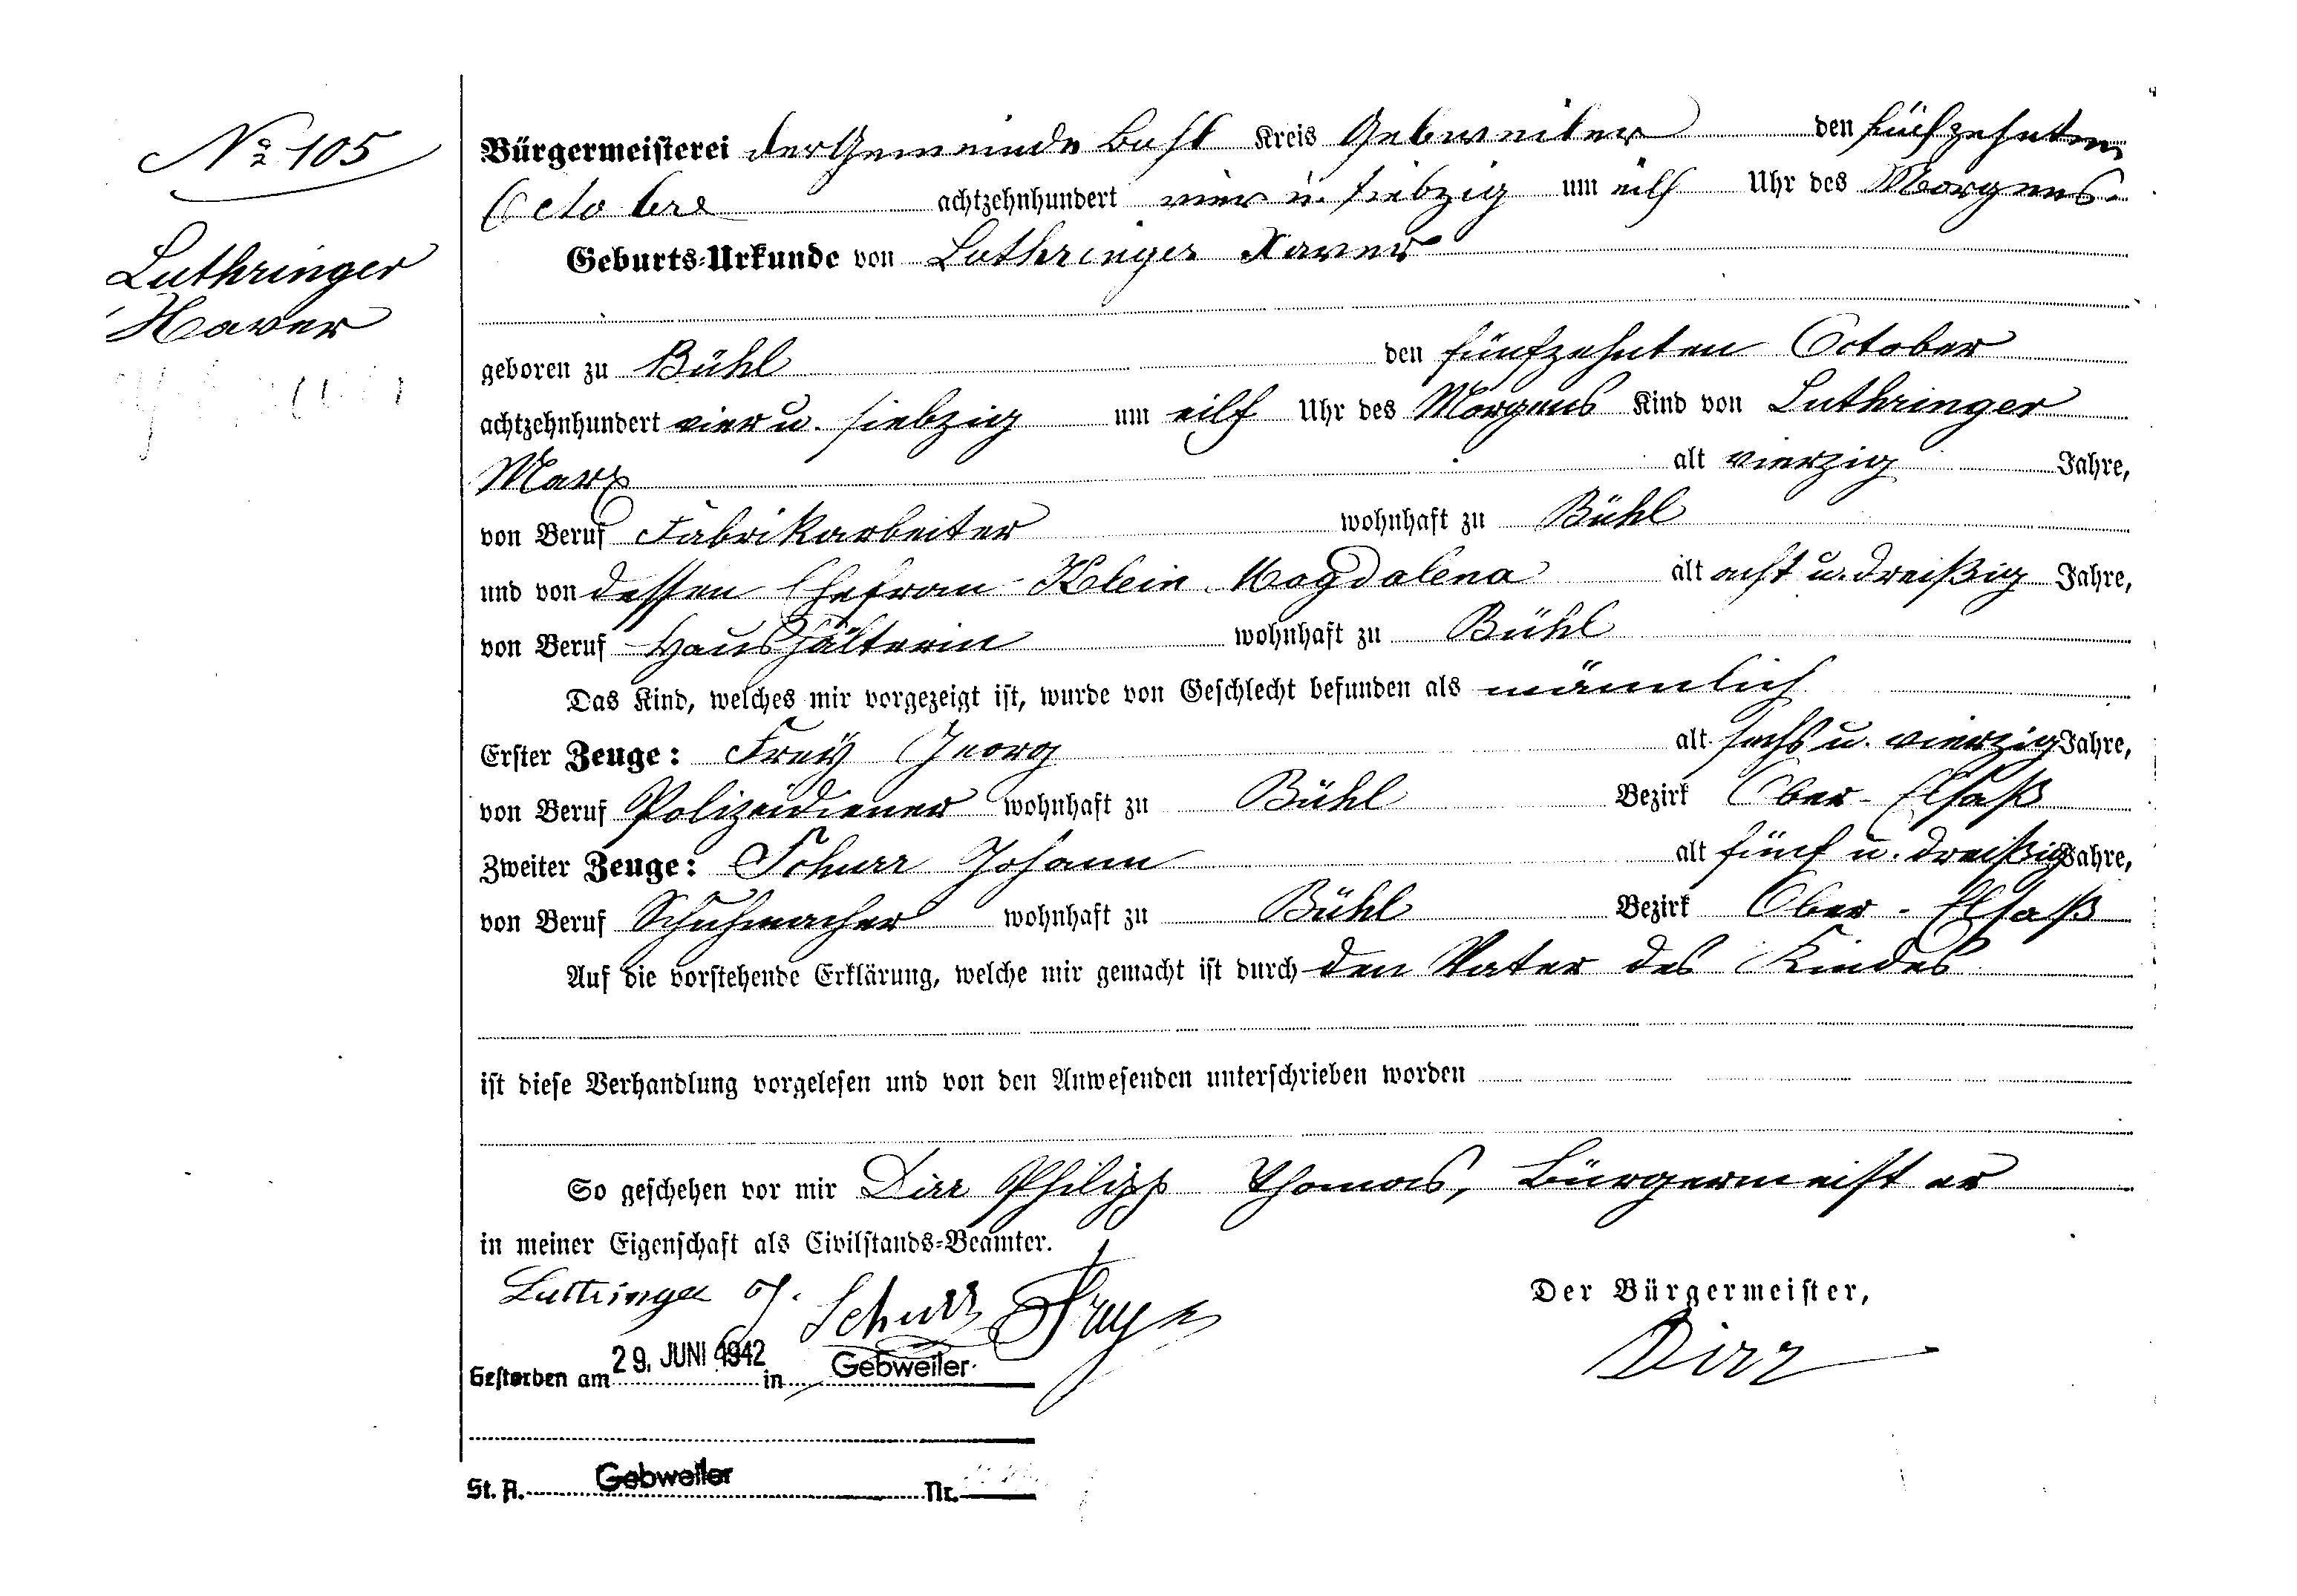 Nº 105
Luthringer
Xaver
Bürgermeisterei der Gemeinde Buhl Kreis Gebweiler den fünfzehnten
Octobre achtzehnhundert vier u. siebzig um eilf Uhr des Morgens.
Geburts-Urkunde von Luthringer Xaver
geboren zu Bühl den fünfzehnten October
achtzehnhundert vier u. siebzig um eilf Uhr des Morgens Kind von Luthringer
Marx alt vierzig Jahre,
von Beruf Fabrikarbeiter wohnhaft zu Bühl
und von dessen Ehefrau Klein Magdalena alt acht u. dreißig Jahre,
von Beruf Haushälterin wohnhaft zu Bühl
Das Kind, welches mir vorgezeigt ist, wurde von Geschlecht befunden als männlich
Erster Zeuge: Frey Georg alt sechs u. vierzig Jahre,
von Beruf Polizeidiener wohnhaft zu Bühl Bezirk Ober-Elsaß
Zweiter Zeuge: Schurr Johann alt fünf u. dreißig Jahre,
von Beruf Schuhmacher wohnhaft zu Bühl Bezirk Ober-Elsaß
Auf die vorstehende Erklärung, welche mir gemacht ist durch den Vater des Kindes
ist diese Verhandlung vorgelesen und von den Anwesenden unterschrieben worden
So geschehen vor mir Dirr Philipp Thomas, Bürgermeister
in meiner Eigenschaft als Civilstands-Beamter.
Luttringer J. Schurr Frey
Der Bürgermeister,
Dirr
Gestorben am 29. JUNI 1942 in Gebweiler
St. A. Gebweiler Nr.